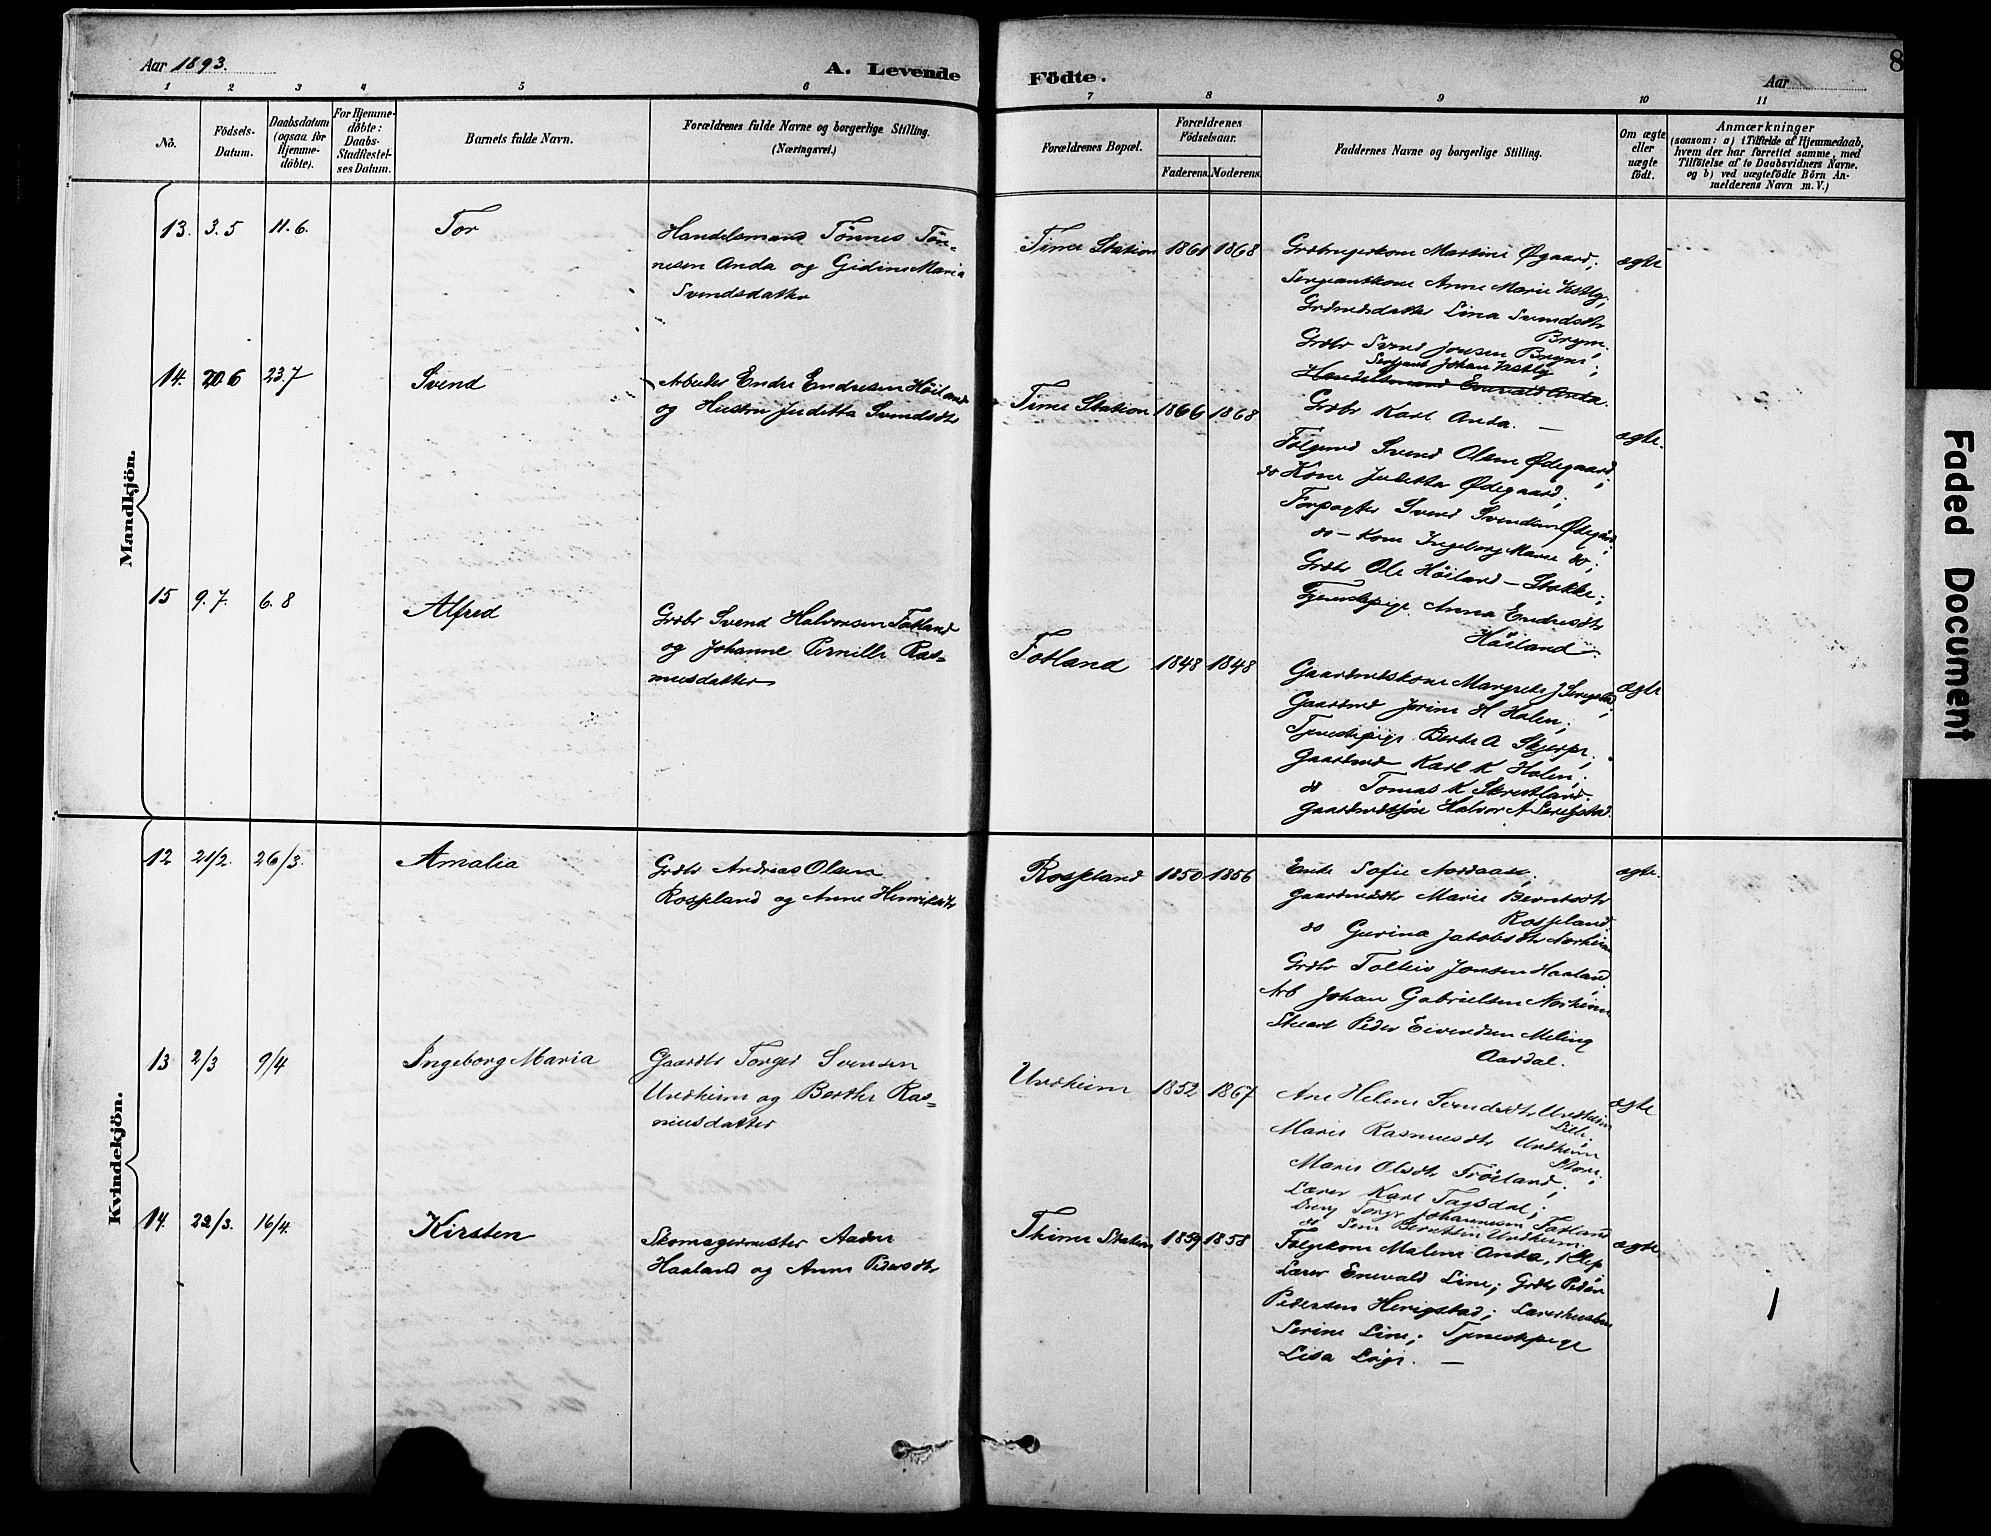 Aar 1893.
A. Levende
Födte.
Aar
8
1 2 3 4 5 6 7 8 9 10 11
No.
Födsels-
Datum.
Daabsdatum
(ogsaa for
Hjemme-
döbte).
For Hjemme-
döbte:
Daabs-
Stadfæstel-
ses Datum.
Barnets fulde Navn.
Forældrenes fulde Navne og borgerlige Stilling.
(Næringsvei.)
Forældrenes Bopæl.
Forældrenes
Födselsaar.
Faderens.
Moderens.
Faddernes Navne og borgerlige Stilling.
Om ægte
eller
uægte
födt.
Anmærkninger
(saasom: a) i Tilfælde af Hjemmedaab,
hvem der har forrettet samme, med
Tilföielse af to Daabsvidners Navne.
og b) ved uægtefödte Börn An-
melderens Navn m.V.)
Mandkjön.
13. 3.5 11.6. Tor
Handelsmand Tönnes Tön-
nesen Anda og Gidine Maria
Svendsdatter
Time Station 1861 1868
Grdbrugerkone Martine Øgaard;
Sergeantkone Anne Marie
Grdmdsdatter Lina Svendsdtr
Bryne.
Grdbr Svend Jonsen Bryne;
Sergeant Johan
Handelsmand Enevald Anda.
Grdbr Karl Anda. —
ægte
14. 20.6 23.7 Svend
Arbeider Endre Endresen Höiland
og Hustru Juditta Svendsdtr
Time Station 1866 1868
Følgemd Svend Olsen Ødegaard;
do Kone Juditta Ødegaard;
Forpagter Svend Svendsen Ødegård
do – Kone Ingeborg Marie do;
Grdbr Ole Höiland – Stokke;
Tjenestepige Anna Endresdtr
Höiland
ægte.
15 9.7. 6.8 Alfred
Grdbr Svend Halvorsen Fotland
og Johanne Pernille Ras-
musdatter
Fotland 1848 1848
Gaardmdskone Margrete J Serigstad;
Gaardmd Jorine H Holen;
Tjenestepige Berte A Skjerpe;
Gaardmd Karl K Holen;
do Tomas K Skretland.
Gaardmdssön Halvor A Serigstad.
ægte
Kvindekjön.
12 21/2. 26/3. Amalia
Grdbr Andreas Olsen
Rosseland og Anne Henriksdtr
Rosseland 1850 1856
Enke Sofie Nordaas;
Gaardmdsdtr Marie Berntsdtr
Rosseland.
do Gurina Jakobsdtr Norheim
Grdbr Tolleiv Jonsen Haaland
Arb Johan Gabrielsen Norheim
Stuart Peder Eivendsen Meling
Aardal.
ægte.
13 2/3 9/4 Ingeborg Maria
Gaardbr Torger Svensen
Undheim og Berthe Ras-
musdatter
Undheim 1852 1867
Ane Helene Svendsdtr Undheim
Lille;
Marie Rasmusdtr Undheim
Store;
Marie Olsdtr Fröiland;
Lærer Karl Tagsdal;
Dreng Torger Johannesen Fotland
do Sem Berntsen Undheim.
ægte
14. 22/3. 16/4. Kirsten
Skomagermester Aadne
Haaland og Anne Pedersdtr
Thime Station 1859 1858
Følgekone Malene Anda, Klep
Lærer Enevald Line; Grdbr Peder
Pedersen Herigstad; Lærerhustru
Serine Line; Tjenestepige
Lisa Løge. —
ægte
Faded Document